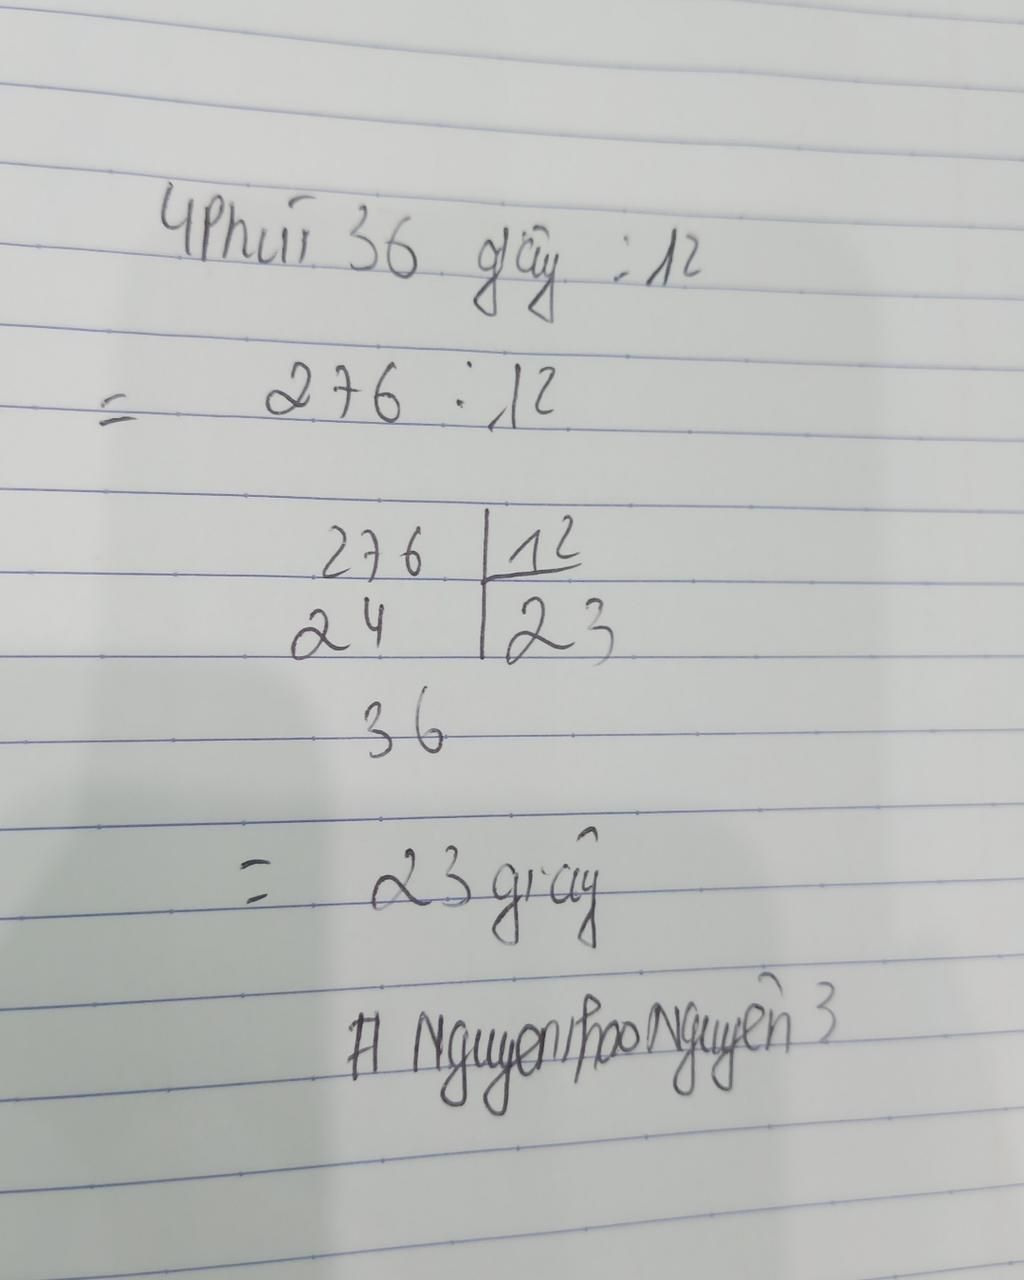 4 Phút 36 giây : 12
= 276 : 12
276 12
24 23
36
= 23 giây
# NguyenthaoNguyên 3